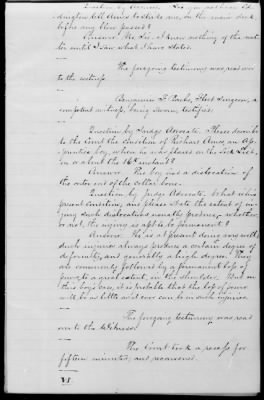 Question by Accused. Did you perhaps Ed-
dington tell Amies to strike me, on the main deck
before any blow passed?
Answer. No Sir. I know nothing of the mat-
ter until I saw what I have stated.
The foregoing testimony was read over
to the witness.
Benjamin F. Fleet Surgeon, a
competent witness, being sworn, testified:
Question by Judge Advocate. Please describe
to this Court the condition of Richard Amies, an Ap-
prentice boy, when he was placed on the Sick List,
on or about the 16th instant?
Answer. The boy had a dislocation of
the outer end of the collar bone.
Question by Judge Advocate. What is his
present condition, and please state the extent of in-
jury such dislocations usually produce, whether
or not, the injury is apt to be permanent?
Answer. He is at present doing very well;
such injuries always produce a certain degree of
deformity, and generally a high degree. They
are commonly followed by a permanent loss of
power, to a great extent, in the shoulder. But in
this boy's case, it is probable that the loss of power
will be as little as it ever can be in such injuries.
The foregoing testimony was read
over to the Witness.
The Court took a recess for
fifteen minutes, and reconvened.
VI.